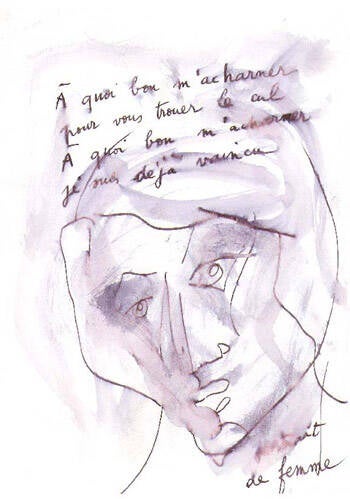 À quoi bon m'acharner
pour vous trouer le cul
À quoi bon m'acharner
je suis déjà vaincu
portrait
de femme